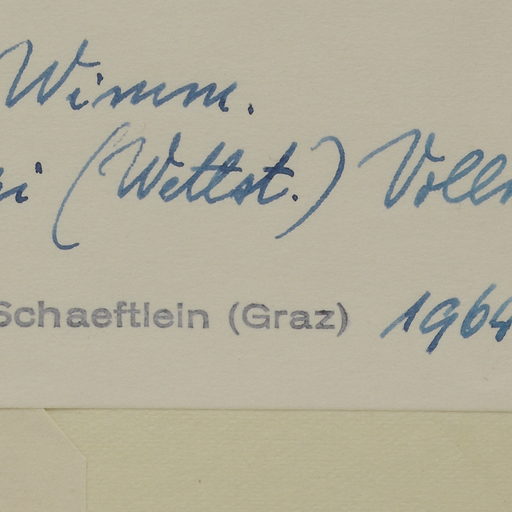 Wimm.
(Wettst.) Vollm
Schaeftlein (Graz) 1964